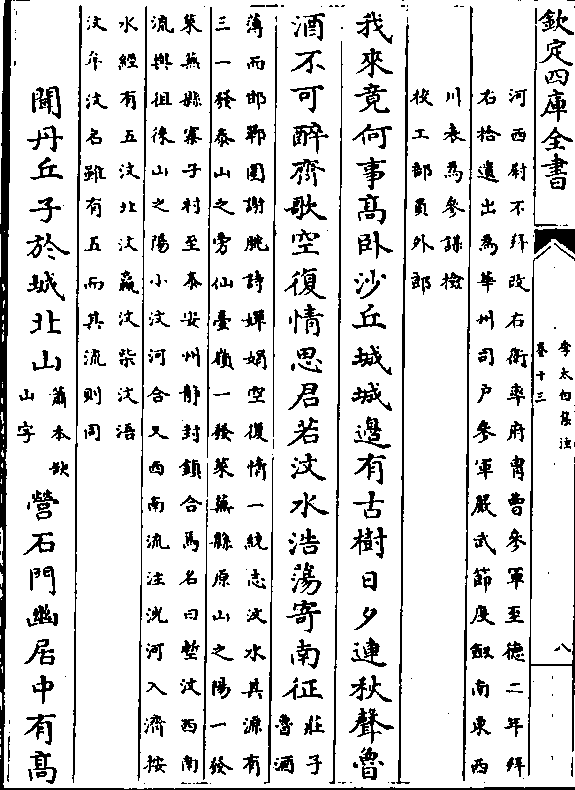 欽定四庫全書
李太白集注
卷十三
八
河西尉不拜改右衛率府胄曹參軍至德二年拜
右拾遺出為華州司户參軍嚴武節度劍南東西
川表為參謀檢
校工部員外郎
我來竟何事高卧沙丘城城邊有古樹日夕連秋聲魯
酒不可醉齊歌空復情思君若汶水浩蕩寄南征莊子
魯酒
薄而邯鄲圍謝朓詩嬋娟空復情一統志汶水其源有
三一發泰山之旁仙臺嶺一發萊蕪縣原山之陽一發
萊蕪縣寨子村至泰安州静封鎮合焉名曰塹汶西南
流與徂徠山之陽小汶河合又西南流注洸河入濟按
水經有五汶北汶嬴汶柴汶浯
汶牟汶名雖有五而其流則同
聞丹丘子於城北山蕭本缺
山字營石門幽居中有高